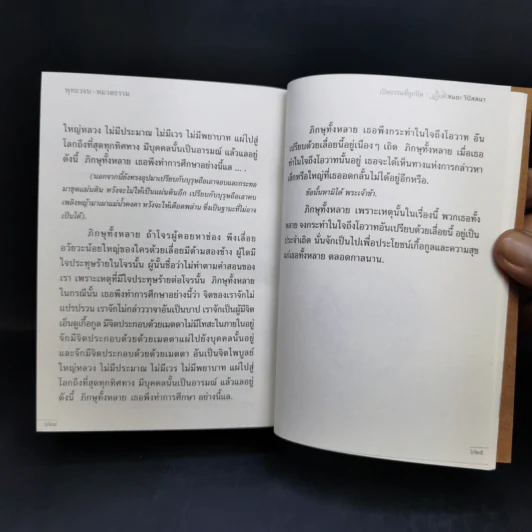 พุทธวจน - หมวดธรรม
ใหญ่หลวง ไม่มีประมาณ ไม่มีเวร ไม่มีพยาบาท แผ่ไปสู่
โลกถึงที่สุดทุกทิศทาง มีบุคคลนั้นเป็นอารมณ์ แล้วแลอยู่
ดังนี้ ภิกษุทั้งหลาย เธอพึงทำการศึกษาอย่างนี้แล ... .
(นอกจากนี้ยังทรงอุปมาเปรียบกับบุรุษถือเอาจอบและกระทอ
มาขุดแผ่นดิน หวังจะไม่ให้เป็นแผ่นดินอีก เปรียบกับบุรุษถือเอาคบ
เพลิงหญ้ามาเผาแม่น้ำคงคา หวังจะให้เดือดพล่าน ซึ่งเป็นฐานะที่ไม่อาจ
เป็นได้).
ภิกษุทั้งหลาย ถ้าโจรผู้คอยหาช่อง พึงเลื่อย
อวัยวะน้อยใหญ่ของใครด้วยเลื่อยมีด้ามสองข้าง ผู้ใดมี
ใจประทุษร้ายในโจรนั้น ผู้นั้นชื่อว่าไม่ทำตามคำสอนของ
เรา เพราะเหตุที่มีใจประทุษร้ายต่อโจรนั้น ภิกษุทั้งหลาย
ในกรณีนั้น เธอพึงทำการศึกษาอย่างนี้ว่า จิตของเราจักไม่
แปรปรวน เราจักไม่กล่าววาจาอันเป็นบาป เราจักเป็นผู้มีจิต
เอ็นดูเกื้อกูล มีจิตประกอบด้วยเมตตาไม่มีโทสะในภายในอยู่
จักมีจิตประกอบด้วยเมตตาแผ่ไปยังบุคคลนั้นอยู่
และจักมีจิตประกอบด้วยเมตตา อันเป็นจิตไพบูลย์
ใหญ่หลวง ไม่มีประมาณ ไม่มีเวร ไม่มีพยาบาท แผ่ไปสู่
โลกถึงที่สุดทุกทิศทาง มีบุคคลนั้นเป็นอารมณ์ แล้วแลอยู่
ดังนี้ ภิกษุทั้งหลาย เธอพึงทำการศึกษา อย่างนี้แล.
เปิดธรรมที่ถูกปิด : สมถะ วิปัสสนา
ภิกษุทั้งหลาย เธอพึงกระทำในใจถึงโอวาท อัน
เปรียบด้วยเลื่อยนี้อยู่เนืองๆ เถิด ภิกษุทั้งหลาย เมื่อเธอ
ทำในใจถึงโอวาทนั้นอยู่ เธอจะได้เห็นทางแห่งการกล่าวหา
เล็กหรือใหญ่ที่เธออดกลั้นไม่ได้อยู่อีกหรือ.
ข้อนั้นหามิได้ พระเจ้าข้า.
ภิกษุทั้งหลาย เพราะเหตุนั้นในเรื่องนี้ พวกเธอทั้ง
หลาย จงกระทำในใจถึงโอวาทอันเปรียบด้วยเลื่อยนี้ อยู่เป็น
ประจำเถิด นั่นจักเป็นไปเพื่อประโยชน์เกื้อกูลและความสุข
แก่เธอทั้งหลาย ตลอดกาลนาน.